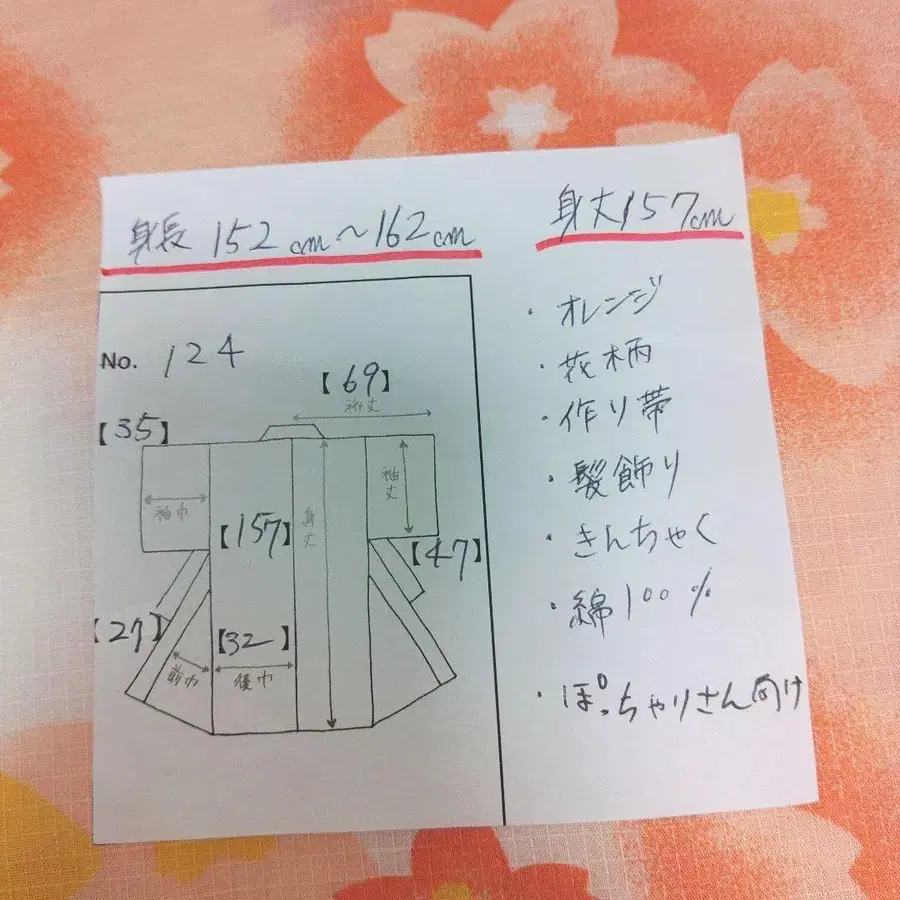 身長 152cm～162cm
身丈157cm
No. 124
【69】
裄丈
【35】
袖巾
袖丈
身丈
【157】
【47】
【27】
【32】
前巾
後巾
・オレンジ
・花柄
・作り帯
・髪飾り
・きんちゃく
・綿100%
・ぽっちゃりさん向け